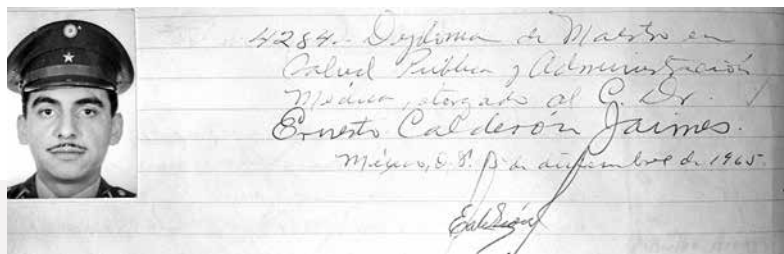 4284.- Diploma de Maestro en
Salud Pública y Administración
Médica, otorgado al C. Dr.
Ernesto Calderón Jaimes.
México, D.F. de diciembre de 1965.